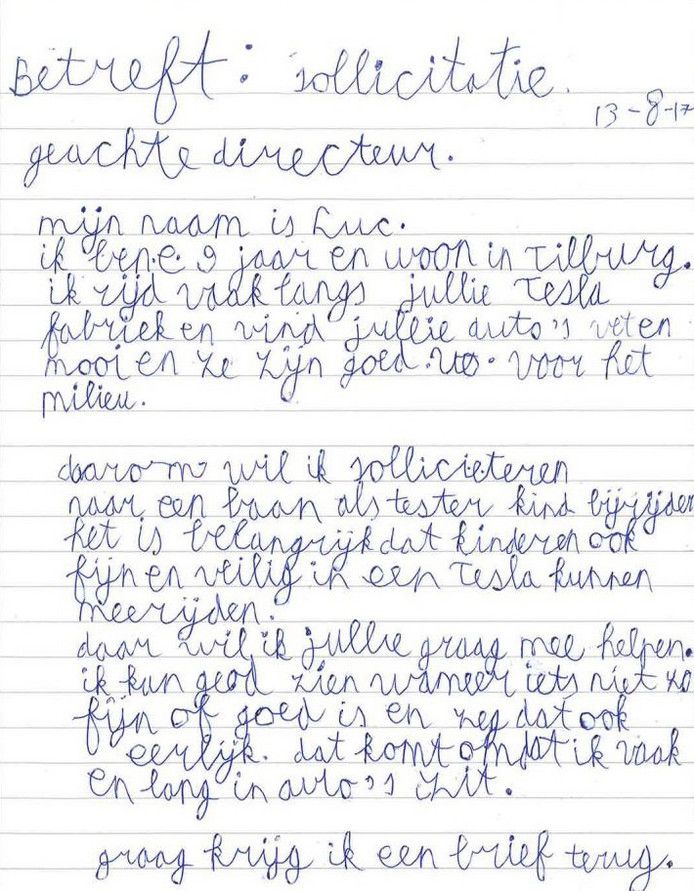 Betreft: sollicitatie.
13-8-17
geachte directeur.
mijn naam is Luc.
ik ben 9 jaar en woon in Tilburg.
ik rijd vaak langs jullie Tesla
fabriek en vind jullie auto's vet en
mooi en ze zijn goed voor het
milieu.
daarom wil ik sollicieteren
naar een baan als tester kind bijrijder
het is belangrijk dat kinderen ook
fijn en veilig in een Tesla kunnen
meerijden.
daar wil ik jullie graag mee helpen.
ik kan geod zien wanneer iets niet zo
fijn of goed is en zeg dat ook
eerlijk. dat komt omdat ik vaak
en lang in auto's zit.
graag krijg ik een brief terug.